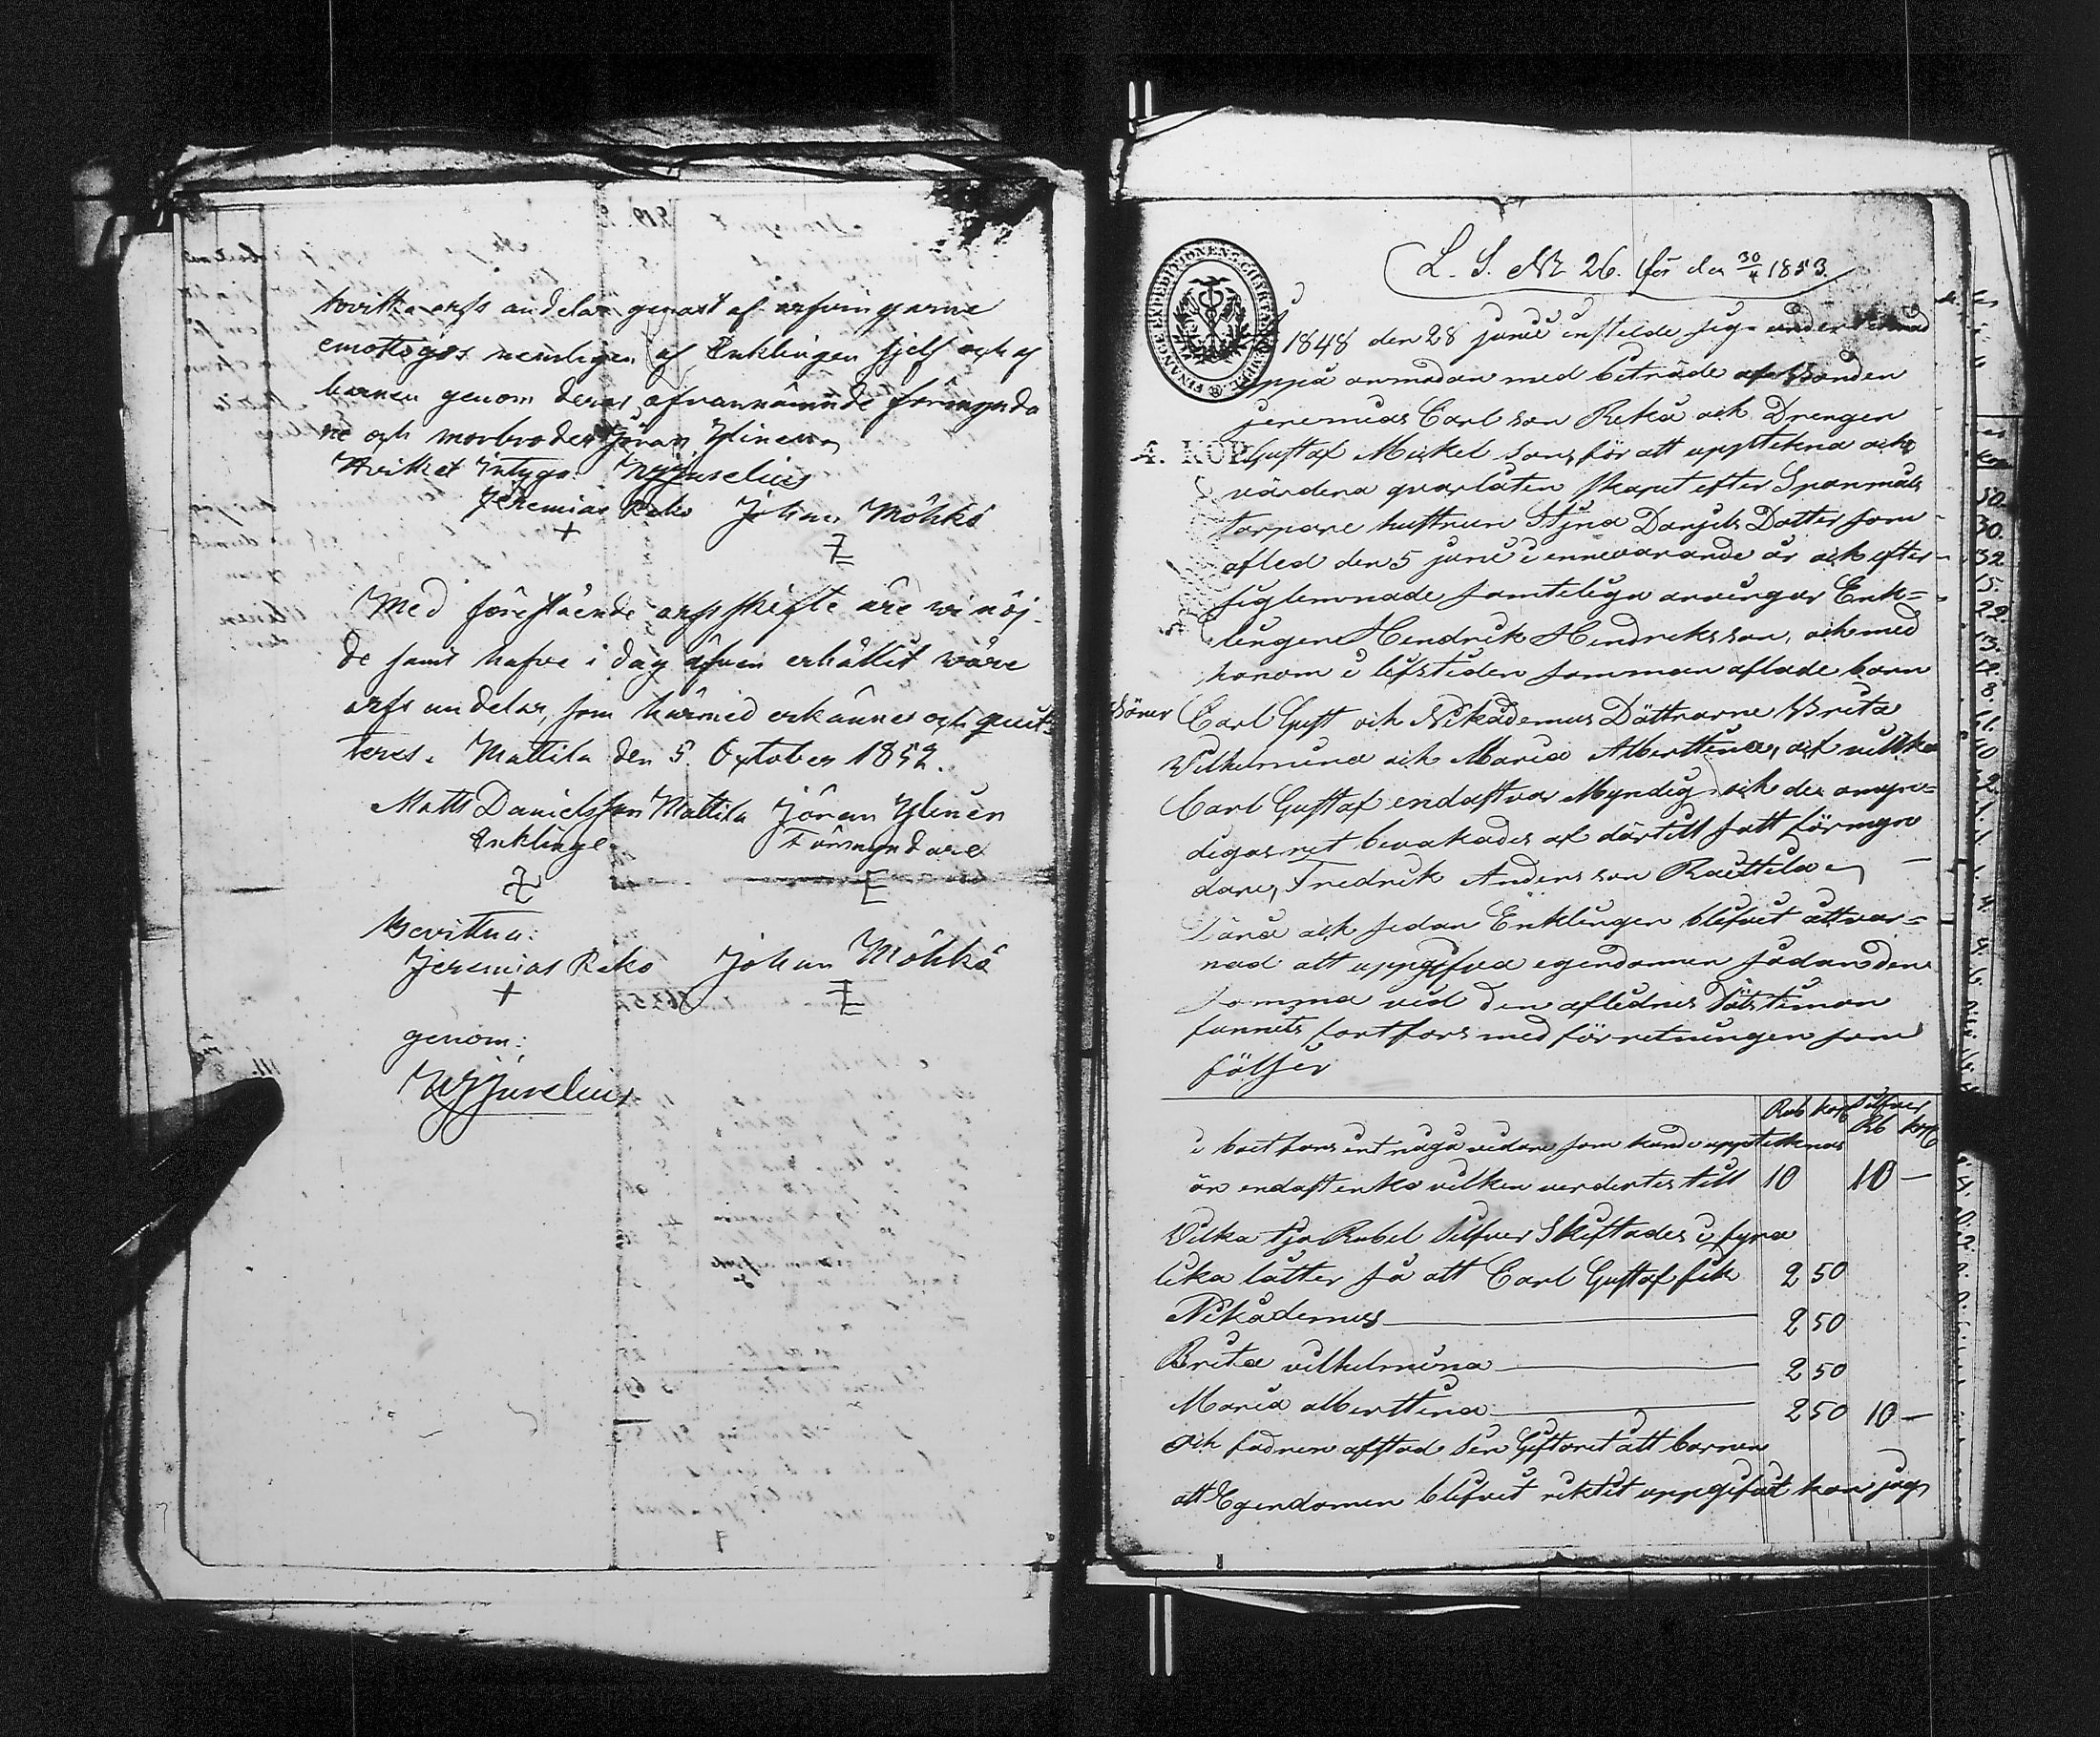 hvilka arfs andelar genast af arfvingarne
emottogos nemligen af Enklingen sjelf och af
barnen genom deras ofvannämnde förmynda
re och morbroder Jöran Ylinen
Hvilket intyga
Jeremias Reko Johan Möhkö
+
Med förestående arfsskifte äre wi nöj-
de samt hafve i dag äfven erhållit wåre
arfs andelar, som härmed erkännes och quit-
teras. Mattila den 5 October 1852.
Matts Danielsson Mattila Jöran Ylinen
Enkling Förmyndare
Bevittna:
Jeremias Reko Johan Möhkö
+
genom:
L. S. No 26. för den 30/4 1853.
FINANCE EXPEDITIONENS CHARTÆ
1848 den 28 junii instelde sig undertecknad
uppå anmodan med biträde af Bonden
jeremias Carlsson Rekå och Drengen
A. KOP. Gustaf Mickelsson, för att uppttekna och
värdera qvarlåtenskapet efter Spanmåls
torpare hustrun Stjna Danjels Dotter som
afled den 5 junii innevarande år och efter
sig lemnade samtelign arvingar Enk=
lingen Hendrik Hendriksson, och med
honom i lifstiden samman aflade barn
Söner Carl Gust och Nikådemus Döttrarne Brita
Vilhelmina och Maria Alberttina, af vilka
Carl Gustaf endast var Myndig och de omyn=
digas ret bevakades af därtill satt förmyn
dare, Fredrik Andersson Raittila
Däră och sedan Enklingen blifvit åttvar=
nad att uppgifva egendomen sådan den
samma vid den aflednes Döts timan
funnits fortfors med förretningen som
följer
Rub kop Silfver
Rb kop
i boet fans int någå vidare som kunde uppttecknas
än endast enko vilken verdertes till 10 10 —
Vilka tjo Rubel Silfver Skiftades i fyra
lika låtter så att Carl Gustaf fik 2 50
Nikådemus 2 50
Brita vilhelmina 2 50
Maria alberttina 2 50 10 —
och fadren afstod sin Giftoret ått barnen
att Egendomen blifvit riktit uppgifvit kan jag